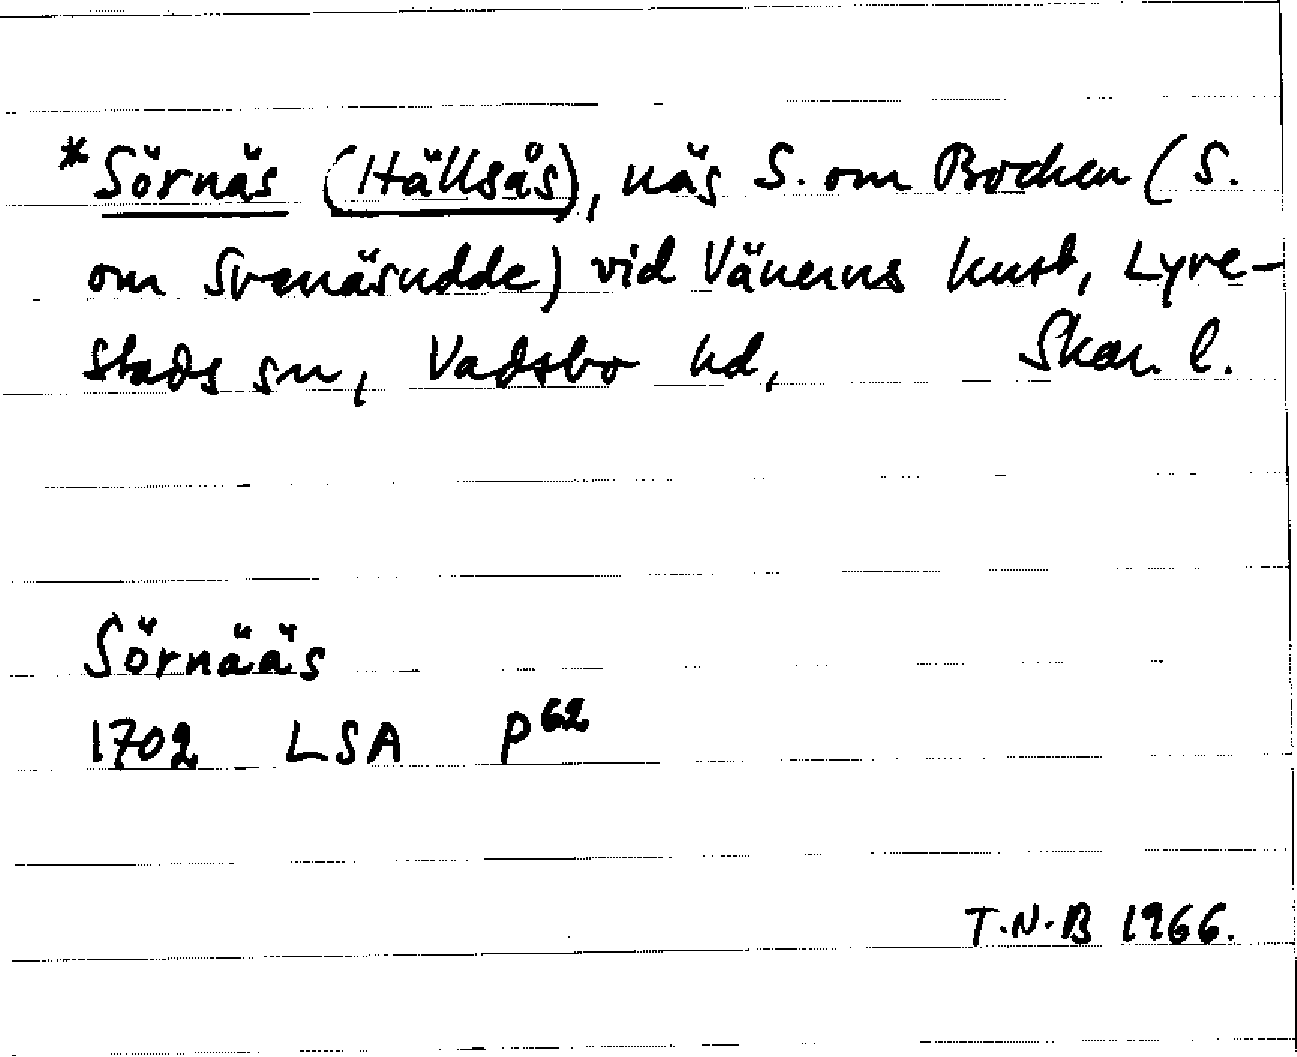 *Sörnäs (Hällsås), näs S. om Bocken (S.
om Svenäsudde) vid Vänerns kust, Lyre-
stads sn, Vadsbo hd, Skar. l.
Sörnääs
1702 LSA P62
T.N.B 1966.